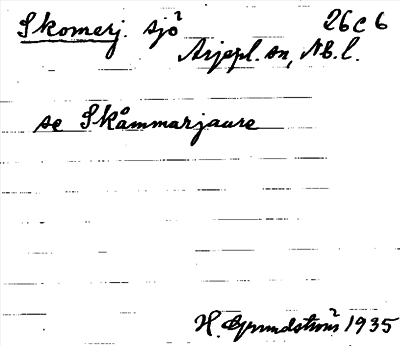 Skomerj. sjö 26C6
Arjepl. sn, NB. l.
se Skåmmarjaure
H. Grundström 1935